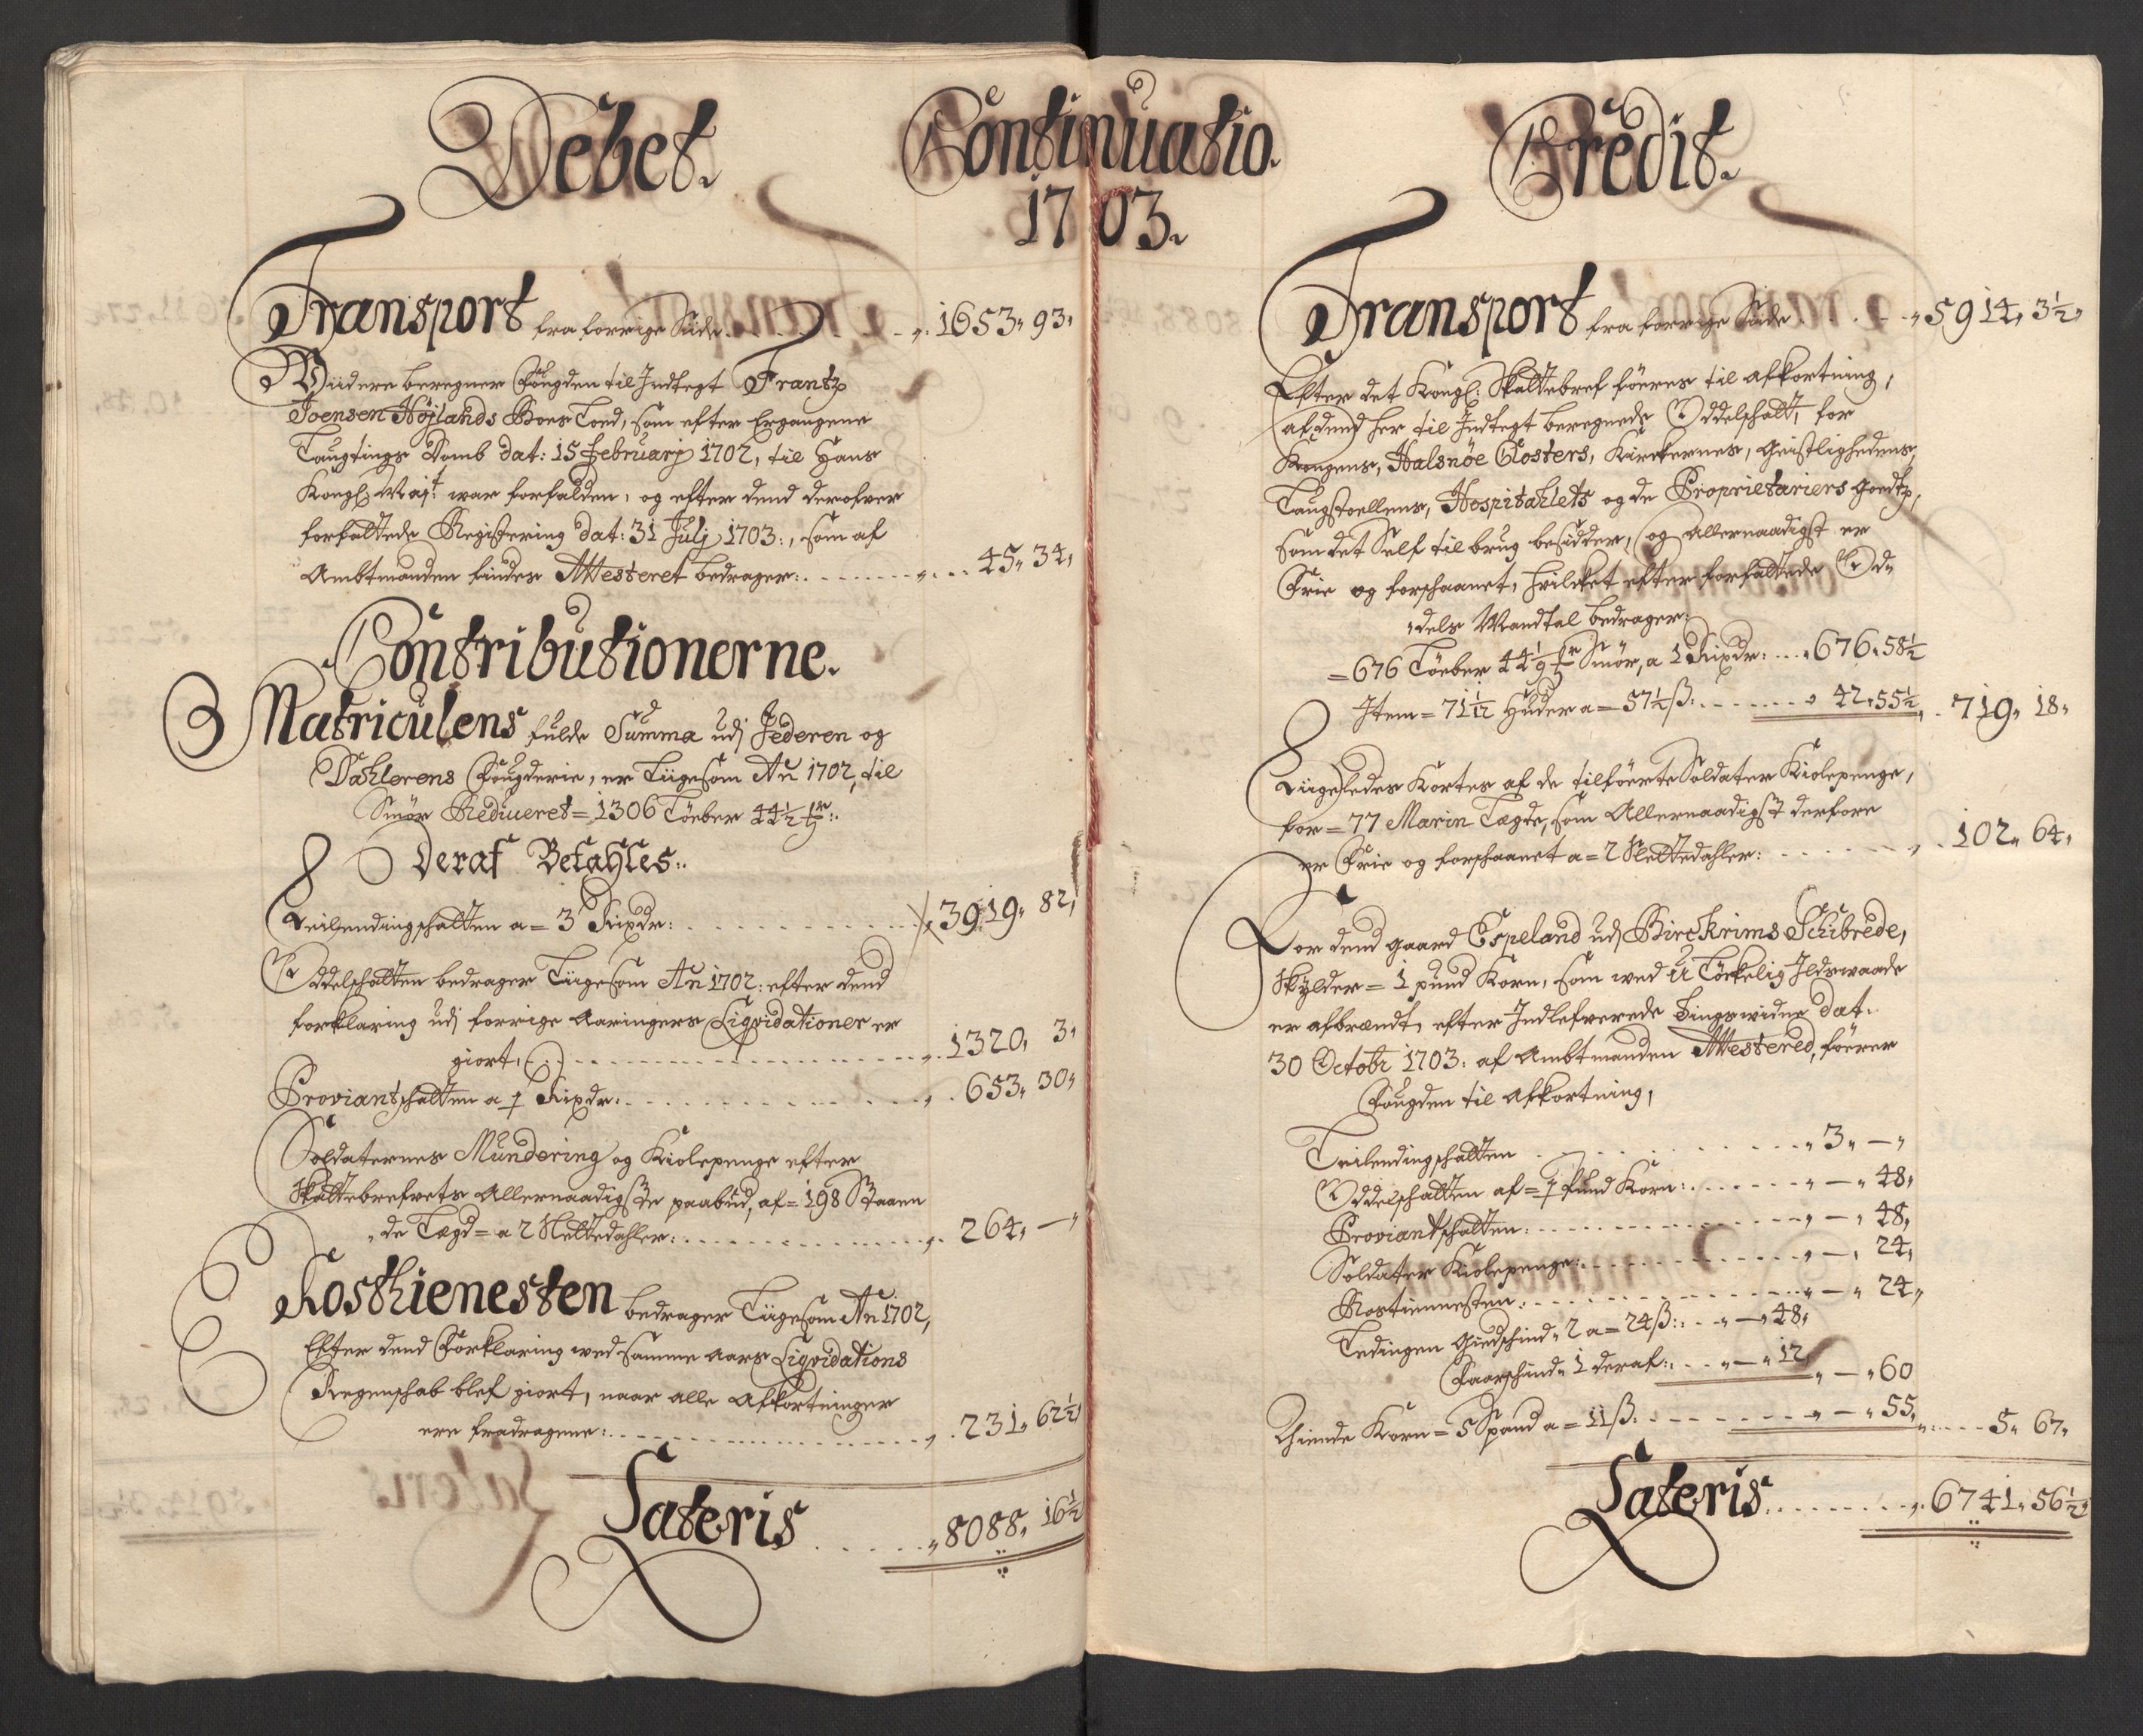 Debet.
Continuatio.
1703.
Transport fra forrige Side . . . . 1653„ 93„
Widere beregner Fougden til Indtegt Frantz
Joensen Höjlands Boes Loed, som efter Ergangene
Laugtings Domb dat: 15 Februarj 1702, til Hans
Kongl: Majt: war forfalden, og efter dend derofver
forfattede Registering dat: 31 Julj 1703:, som af
Ambtmanden findes Attesteret bedrager: . . . . 45„ 34„
Contributionerne.
Matriculens fulde Summa udj Jederen og
Dahlerens Fougderie, er Liigesom Ao 1702, til
Smör Reduceret = 1306 Löeber 44½
Deraf Betahles:
Leilendingschatten a = 3 Rixdr: . . . . 3919„ 82„
Oddelschatten bedrager Liigesom Ao 1702: efter dend
forklaring udj forrige Aaringers Liqvidationer er
giort, . . . . 1320„ 3„
Proviantschatten a ½ Rixdr: . . . . 653„ 30„
Soldaternes Mundering og Kiolepenge efter
Skattebrefvets Allernaadigste paabud, af = 198 Staaen
„de Lægd = a 2 Slettedahler: . . . . 264„ —„
Rosthienesten bedrager Liigesom Ao 1702,
Efter dend Forklaring wed samme Aars Liqvidations
Regenschab blef giort, naar alle Afkortninger
ere fradragene: . . . . 231„ 62½
Lateris . . . . 8088„ 16½
Credit.
Transport fra forrige Side . . . . 5914„ 3½„
Efter det Kongl: Skattebref föeres til afkortning,
(af dend her til Indtegt beregnede Oddelschatt, for
Kongens, Halsnöe Closters, Kirckernes, Geistlighedens,
Laugstoellens, Hospitahlets og de Proprietariers Goedtz,
som det Self til brug besidder, og Allernaadigst er
Frie og forschaanet, hvilcket efter forfattede Od„
„dels Mandtal bedrager:
= 676 Löeber 44 Smör, a 1 Rixdr: . . . 676„ 58½
Item = 71 1/12 Huder a = 57½ ß: . . . . 42„ 55½ . 719„ 18„
Liigeledes Kortes af de tilföerte Soldater Kiolepenge,
for = 77 Marin Lægde, som Allernaadigst derfore
er Frie og forschaanet a = 2 Slettedahler: . . . . 102„ 64„
For dend gaard Espeland udj Birckrims Schibrede,
Skylder = 1 pund Korn, som wed U Löckelig Ildswaade
er afbrændt, efter Indlefverede Tingswidne dat:
30 Octobr 1703: af Ambtmanden Attestered, föerer
Fougden til Afkortning,
Leilendingschatten . . . . 3„ —„
Oddelschatten af = 1 pund Korn: . . . . — „ 48„
Proviantschatten: . . . . — „ 48„
Soldater Kiolepenge: . . . . — „ 24„
Rostienesten: . . . . — „ 24„
Ledingen Giedschind„ 2 a = 24 ß: . . . — 48„
Faarschind„ 1 deraf: . . . — „ 12 „ — „ 60
Thiende Korn = 5 Spand a = 11 ß: . . . . — „ 55„ . . . . 5„ 67„
Lateris . . . . 6741„ 56½„